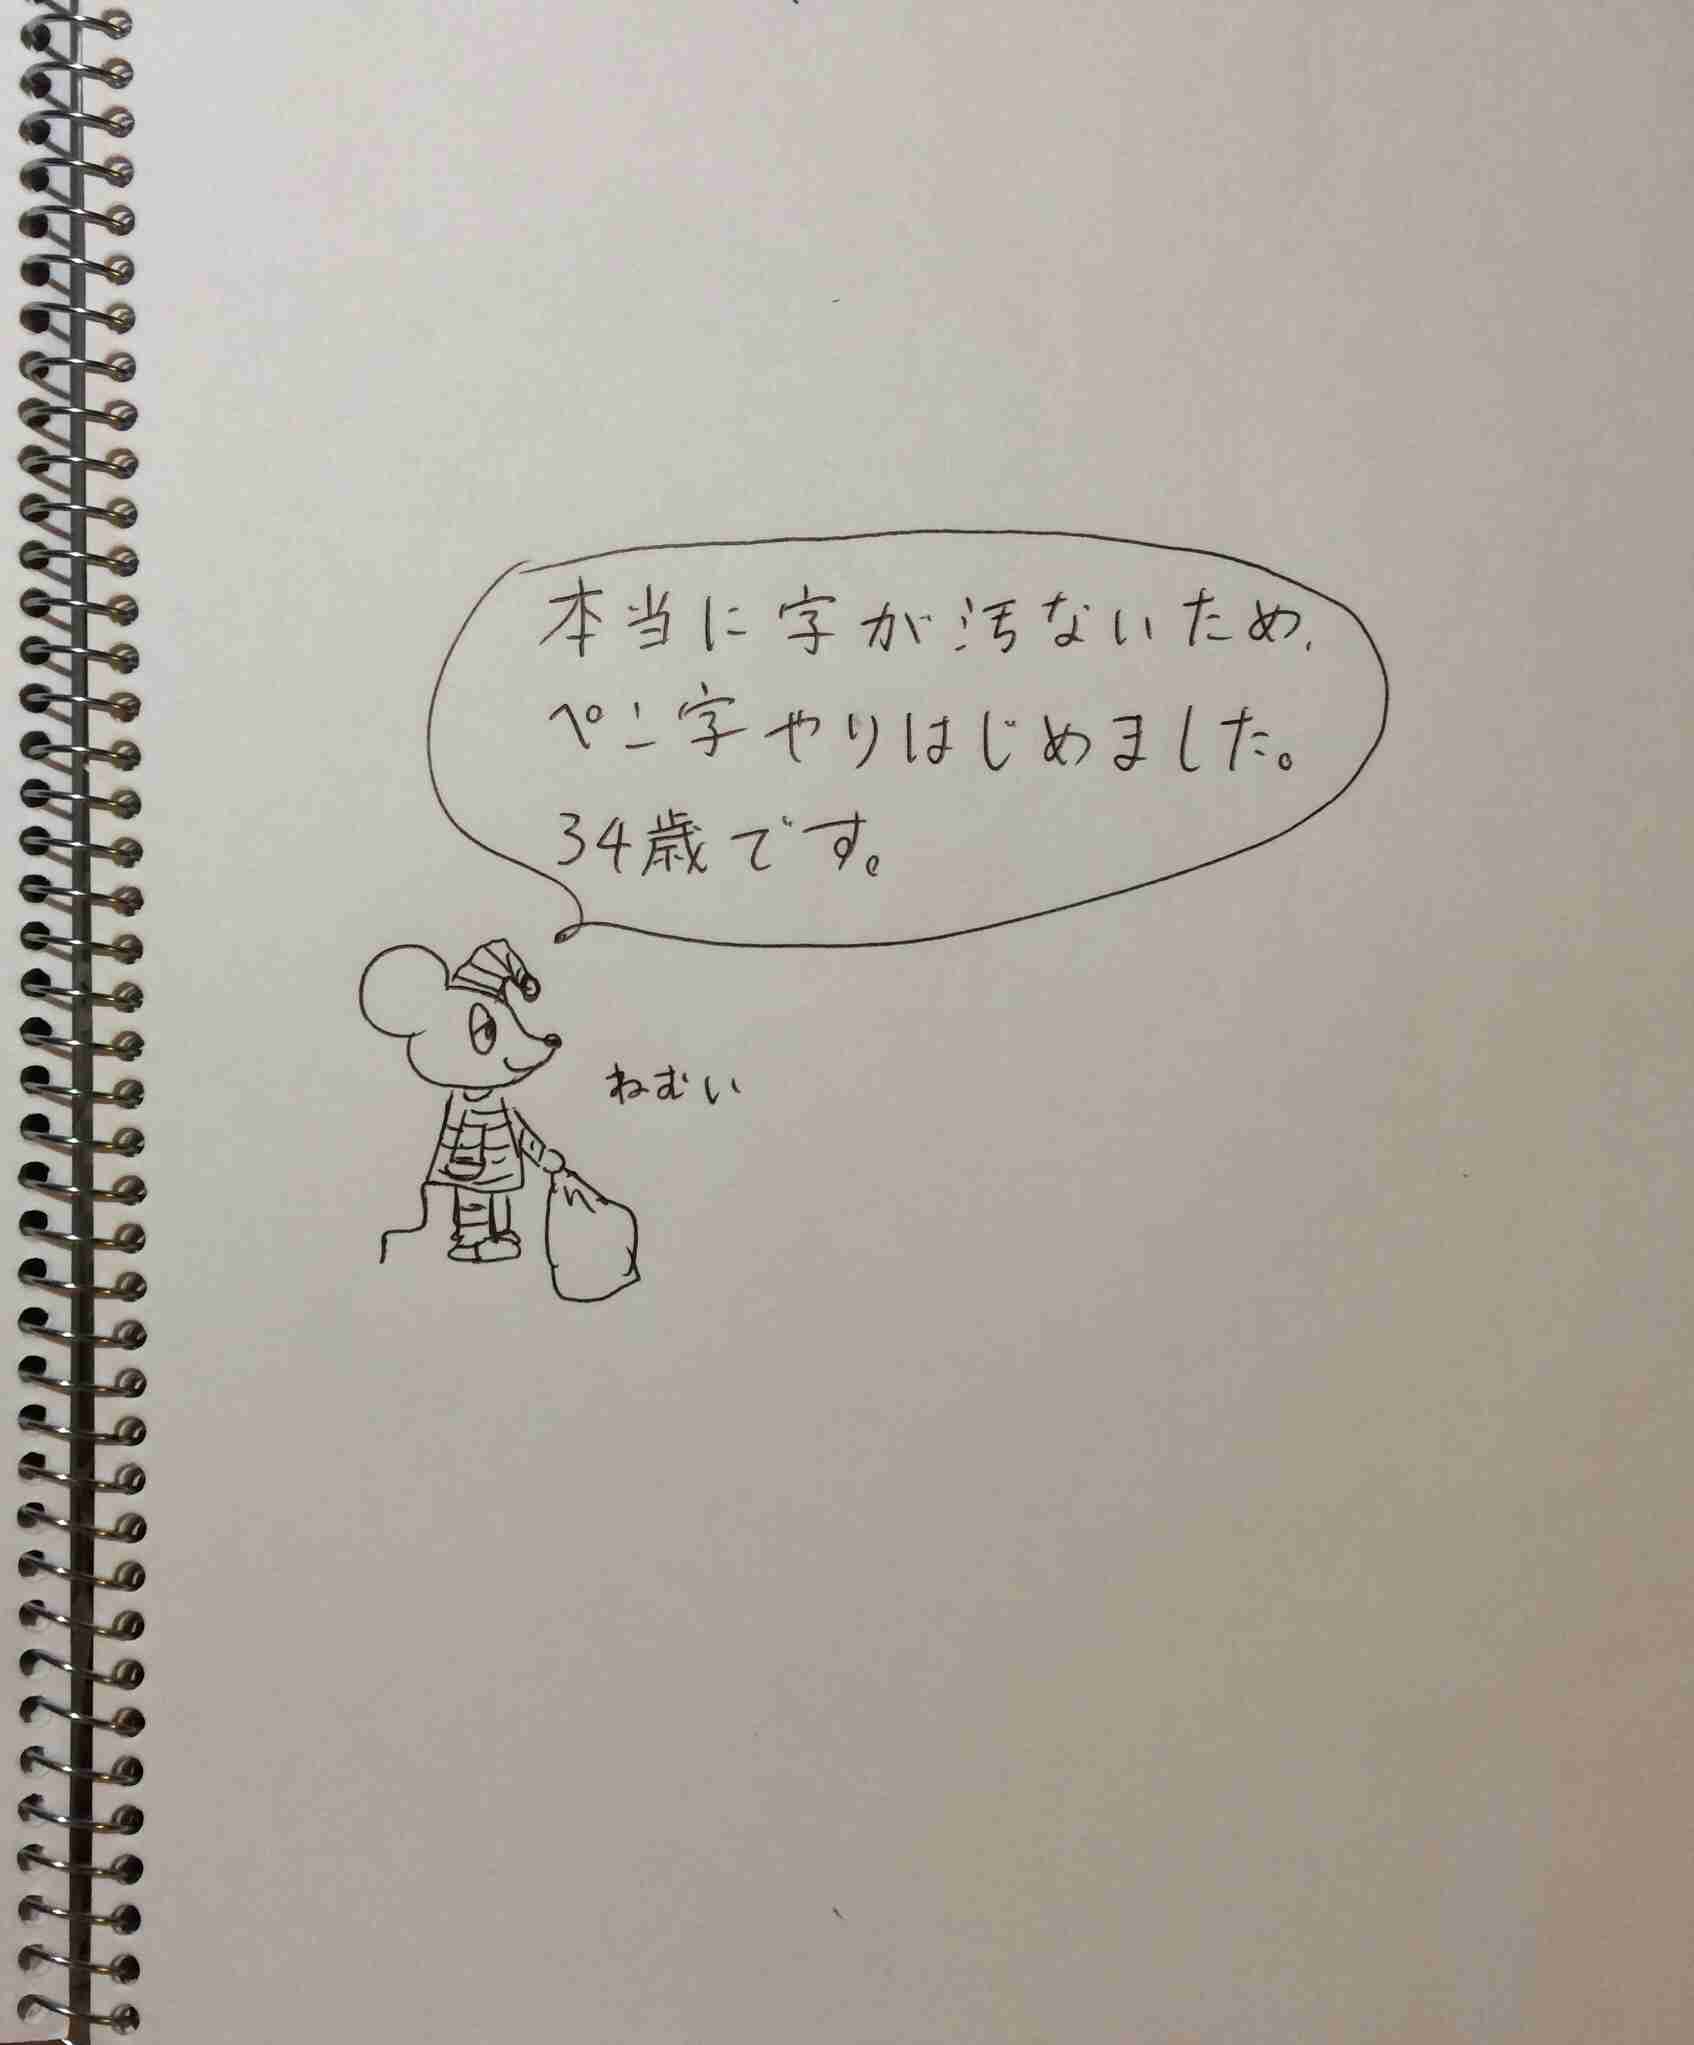 本当に字が汚ないため、
ペン字やりはじめました。
34歳です。
ねむい